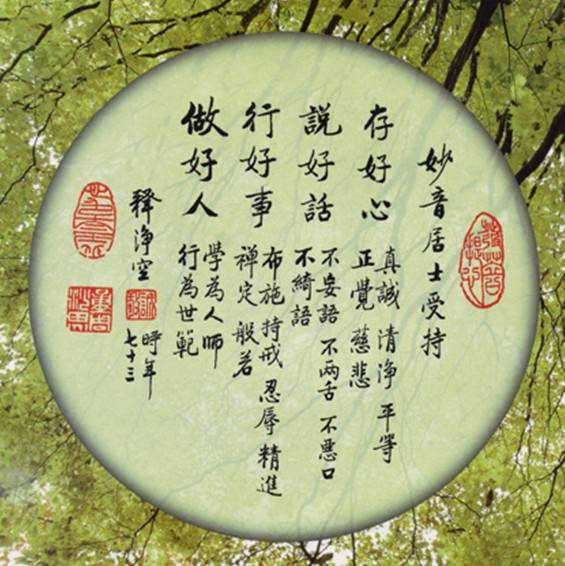 妙音居士受持
存好心
真誠 清淨 平等
正覺 慈悲
說好話
不妄語 不两舌 不惡口
不綺語
行好事
布施 持戒 忍辱 精進
禅定 般若
做好人
學為人師
行為世範
釋淨空
時年
七十三